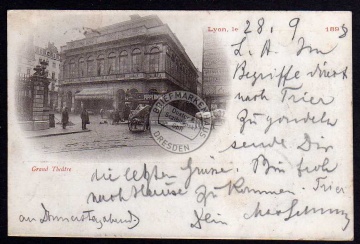 Lyon, le 28. 9 1898
L. A. Im
Begriffe direkt
nach Trier
zu gondeln
sende Dir
die letzten Grüsse. Bin froh
nach Hause zu kommen. Trier
an Donnerstag abend)
Dein
Grand Théâtre
BRIEFMARKEN
DRESDEN